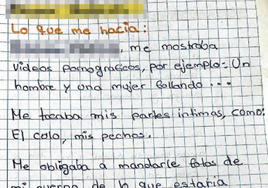 Lo que me hacía:
, me mostraba
videos pornograficos, por ejemplo: Un
hombre y una mujer follando...
Me tocaba mis partes intimas, como:
El colo, mis pechos.
Me obligaba a mandarle fotos de
mi cuerpo de lo que estaria